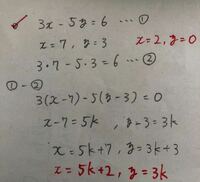 3x - 5y = 6 … ①
x = 7 , y = 3 x = 2, y = 0
3・7 - 5・3 = 6 … ②
① - ②
3(x-7) - 5(y-3) = 0
x - 7 = 5k , y - 3 = 3k
x = 5k+7 , y = 3k+3
x = 5k+2 , y = 3k